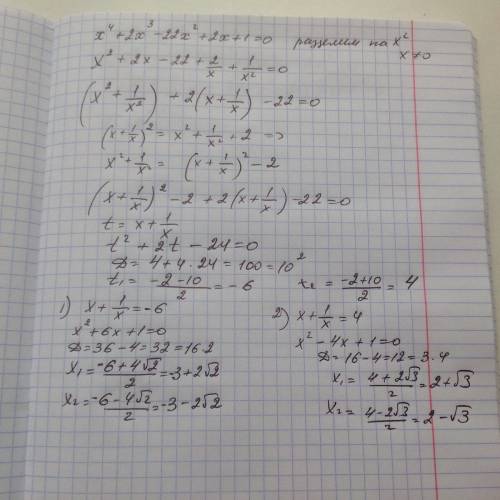 x⁴ + 2x³ - 22x² + 2x + 1 = 0 разделим на x²
x ≠ 0
x² + 2x - 22 + 2/x + 1/x² = 0
(x² + 1/x²) + 2(x + 1/x) - 22 = 0
(x + 1/x)² = x² + 1/x² + 2 =>
x² + 1/x² = (x + 1/x)² - 2
(x + 1/x)² - 2 + 2(x + 1/x) - 22 = 0
t = x + 1/x
t² + 2t - 24 = 0
D = 4 + 4 · 24 = 100 = 10²
t₁ = (-2 - 10)/2 = -6 x₂ = (-2 + 10)/2 = 4
1) x + 1/x = -6
x² + 6x + 1 = 0
D = 36 - 4 = 32 = 16·2
x₁ = (-6 + 4√2)/2 = -3 + 2√2
x₂ = (-6 - 4√2)/2 = -3 - 2√2
2) x + 1/x = 4
x² - 4x + 1 = 0
D = 16 - 4 = 12 = 3·4
x₁ = (4 + 2√3)/2 = 2 + √3
x₂ = (4 - 2√3)/2 = 2 - √3